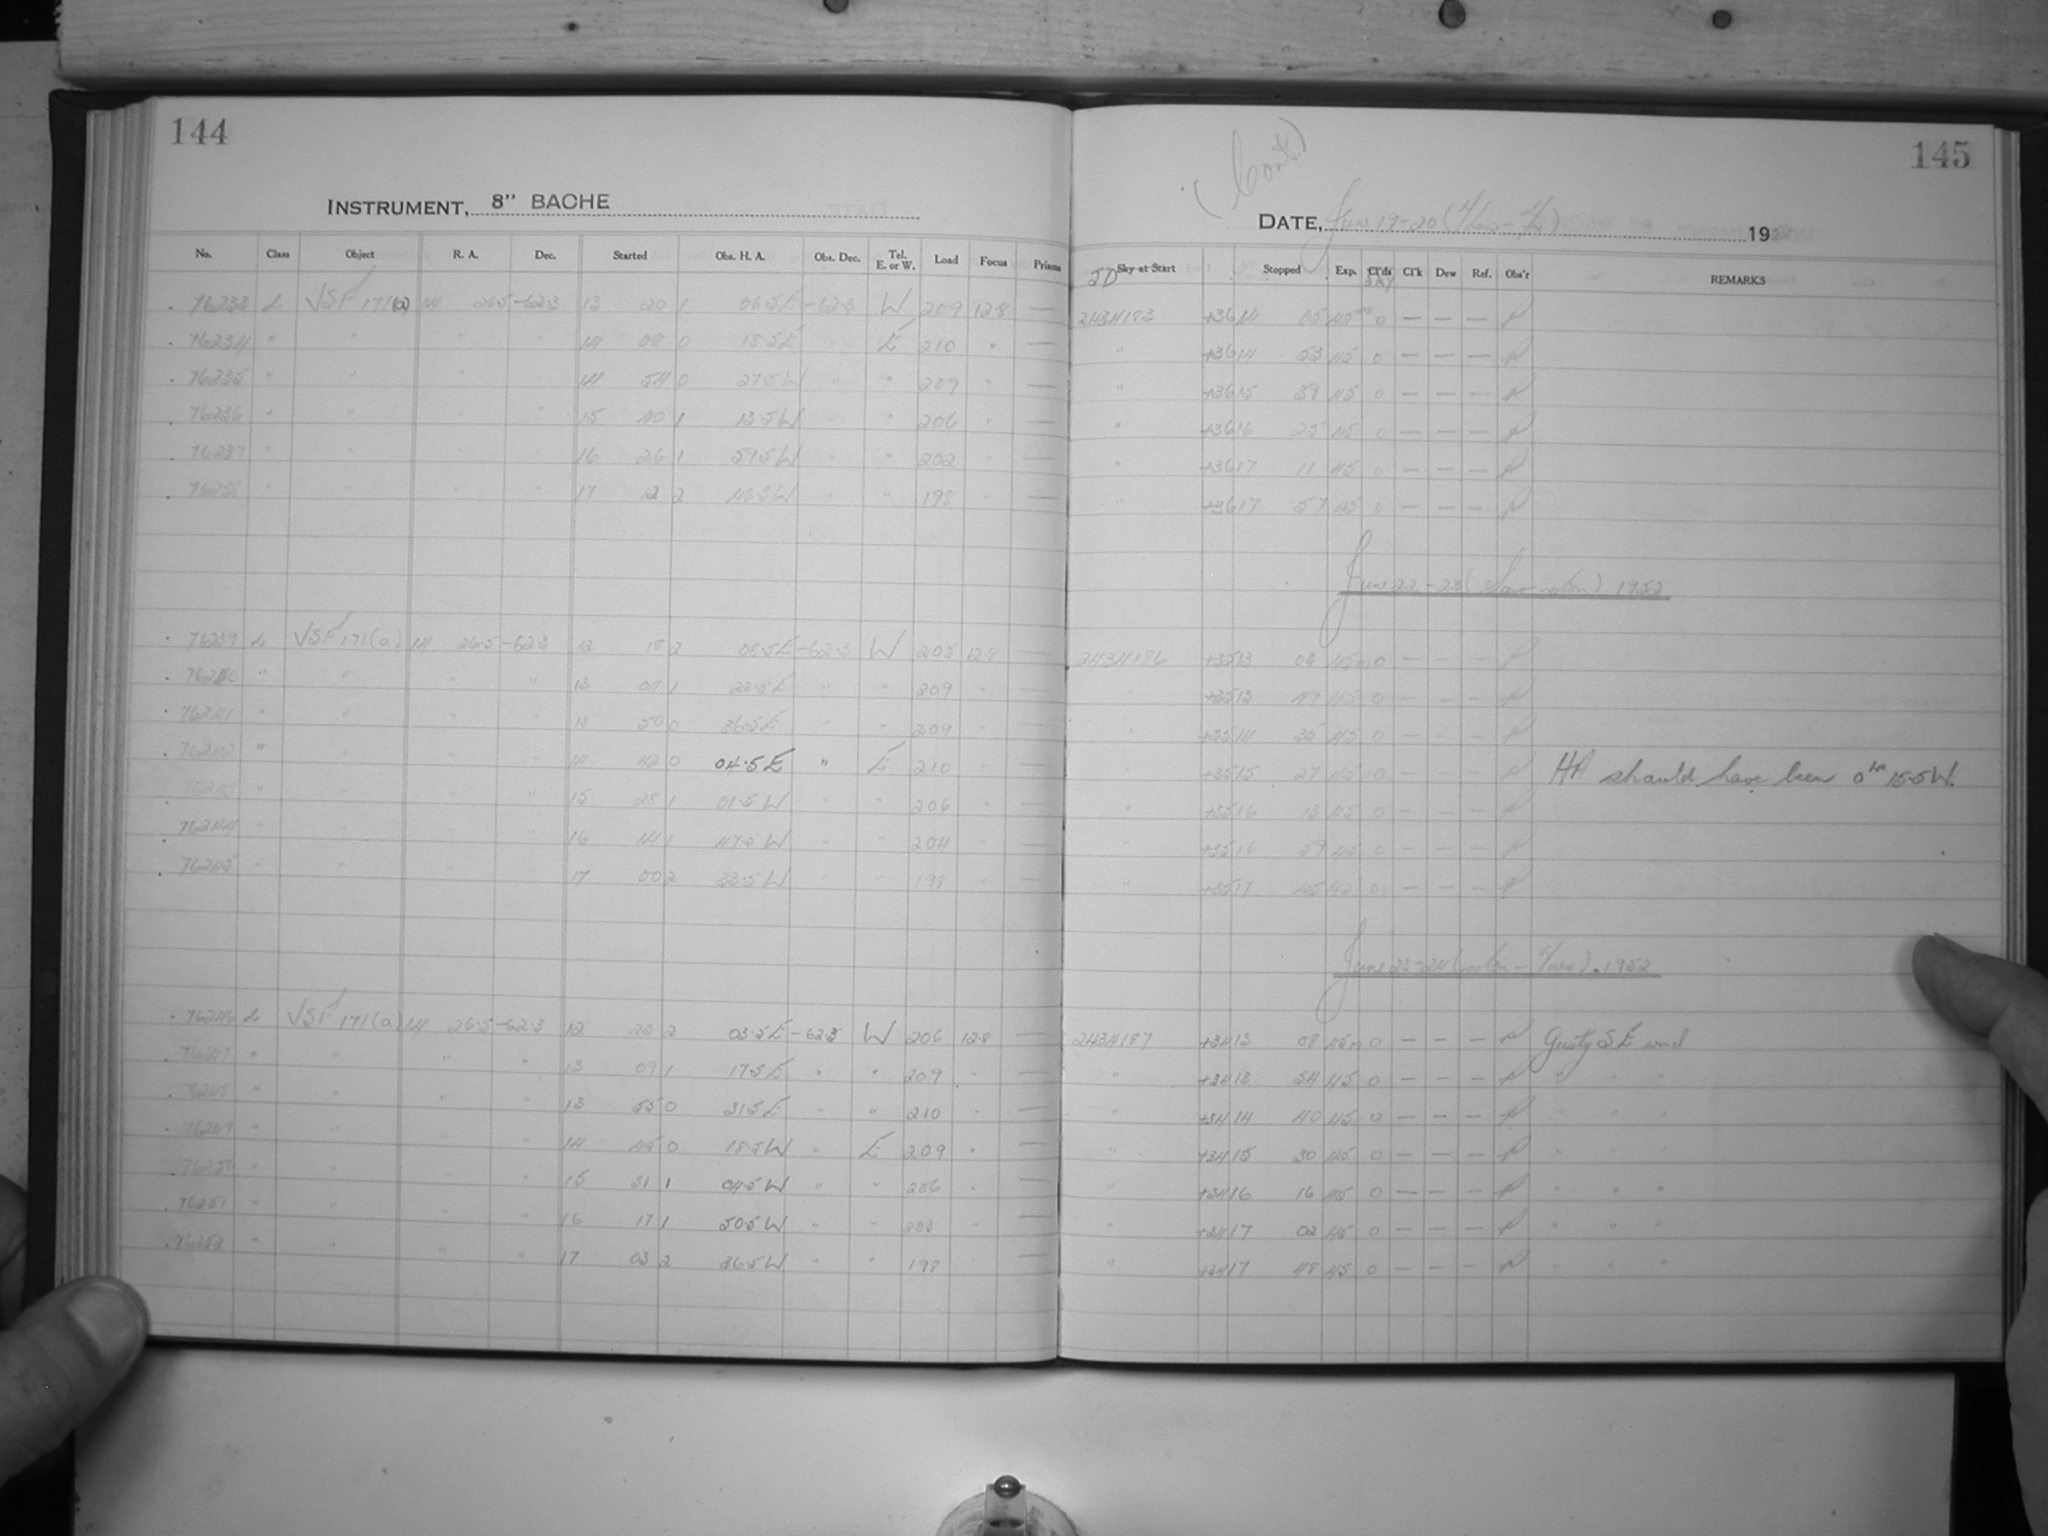 144
INSTRUMENT, 8" BACHE
No. Class Object R. A. Dec. Started Obs. H. A. Obs. Dec. Tel. E. or W. Load Focus Prisms
76233 L VSF 171(a) 14 26.5 -62.3 13 20 1 06.5E -62.3 W 209 12.8 —
76234 " " " " 14 08 0 18.5E " E 210 " —
76235 " " " " 14 54 0 27.5W " " 209 " —
76236 " " " " 15 40 1 13.5W " " 206 " —
76237 " " " " 16 26 1 59.5W " " 202 " —
76238 " " " " 17 12 2 45.5W " " 198 " —
76239 L VSF 171(a) 14 26.5 -62.3 12 18 2 08.5E -62.3 W 205 12.8 —
76240 " " " " 13 04 1 22.5E " " 209 " —
76241 " " " " 13 50 0 36.5E " " 209 " —
76242 " " " " 14 42 0 04.5E " E 210 " —
76243 " " " " 15 28 1 01.5W " " 206 " —
76244 " " " " 16 14 1 47.5W " " 204 " —
76245 " " " " 17 00 2 33.5W " " 198 " —
76246 L VSF 171(a) 14 26.5 -62.3 12 23 2 03.5E -62.3 W 206 12.8 —
76247 " " " " 13 09 1 17.5E " " 209 " —
76248 " " " " 13 55 0 31.5E " " 210 " —
76249 " " " " 14 45 0 18.5W " E 209 " —
76250 " " " " 15 31 1 04.5W " " 206 " —
76251 " " " " 16 17 1 50.5W " " 203 " —
76252 " " " " 17 03 2 36.5W " " 198 " —
145
(Cont.)
DATE, June 19-20 (Thes - Fri) 1952
JD Sky at Start Stopped Exp. Cl'ds SKY Cl'k Dew Ref. Obs'r REMARKS
2434183 +36 14 05 45m 0 — — —
" +36 14 53 45 0 — — —
" +36 15 39 45 0 — — —
" +36 16 25 45 0 — — —
" +36 17 11 45 0 — — —
" +36 17 57 45 0 — — —
June 22-23 (Sun - Mon) 1952
2434186 +35 13 03 45m 0 — — —
" +35 13 49 45 0 — — —
" +35 14 35 45 0 — — —
" +35 15 27 45 0 — — — HA should have been 0hr 15.5W.
" +35 16 13 45 0 — — —
" +35 16 59 45 0 — — —
" +35 17 45 45 0 — — —
June 23-24 (Mon - Tues). 1952
2434187 +34 13 08 45m 0 — — — Gusty SE wind
" +34 13 54 45 0 — — — " " "
" +34 14 40 45 0 — — — " " "
" +34 15 30 45 0 — — — " " "
" +34 16 16 45 0 — — — " " "
" +34 17 02 45 0 — — — " " "
" +34 17 48 45 0 — — — " " "